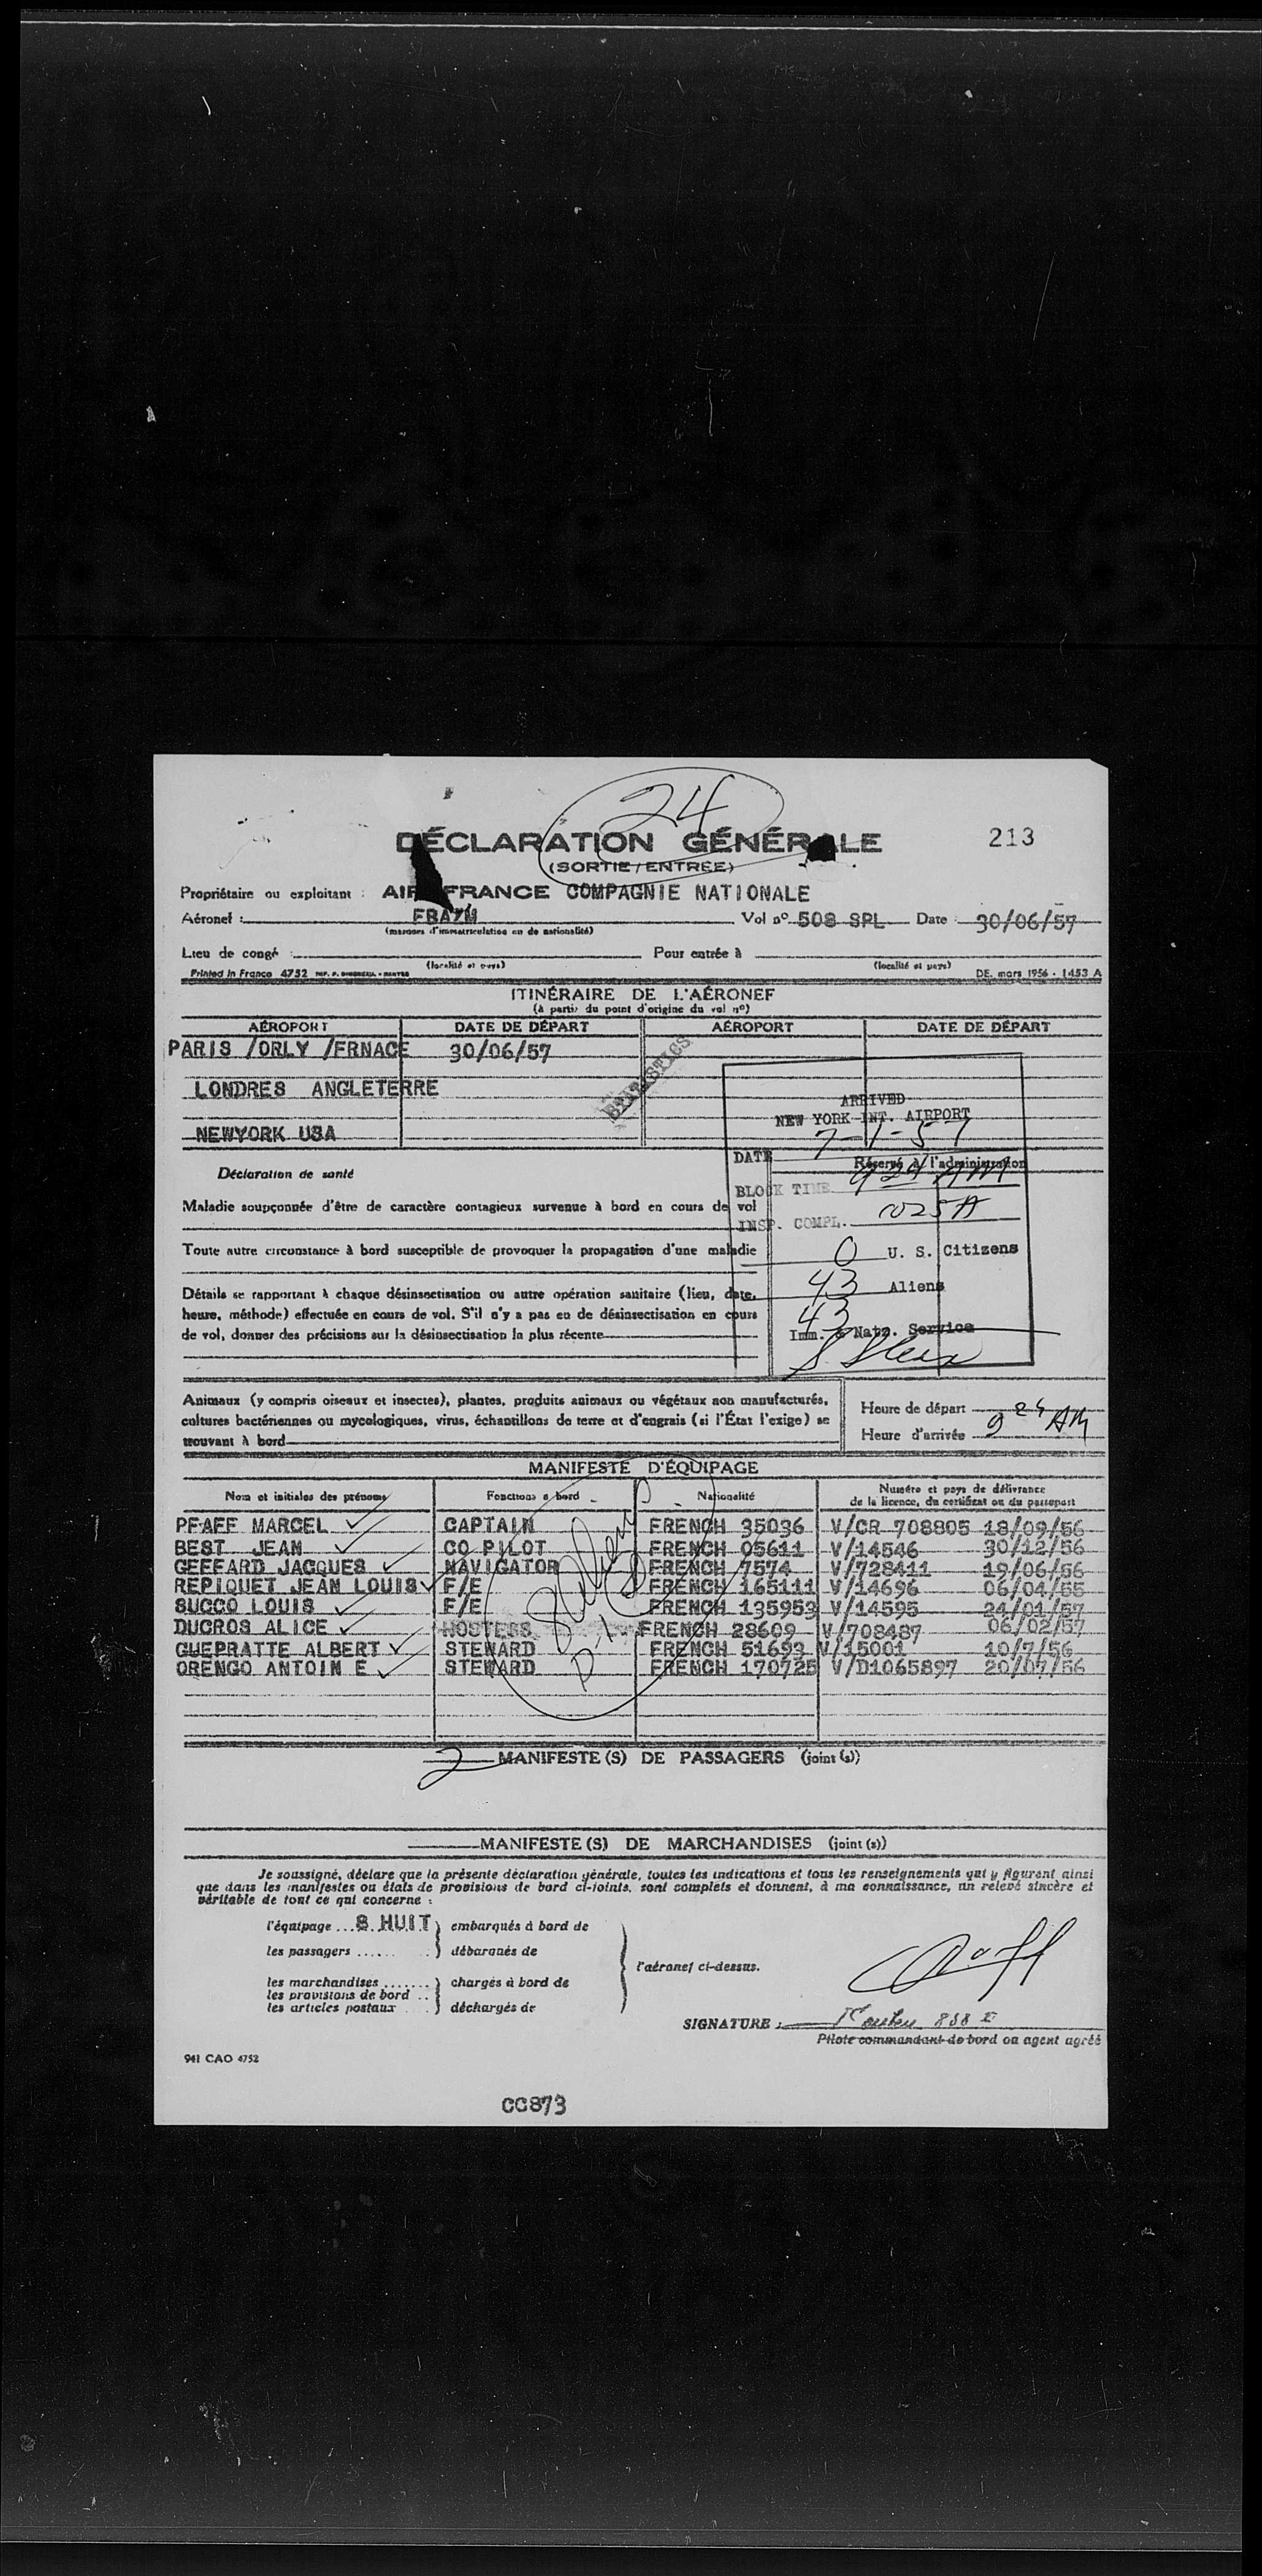 24
DÉCLARATION GÉNÉRALE
213
(SORTIE / ENTRÉE)
Propriétaire ou exploitant : AIR FRANCE COMPAGNIE NATIONALE
Aéronef : Vol nº 508 SPL Date 30/06/57
(marques d'immatriculation ou de nationalité)
Lieu de congé : Pour entrée à
(localité et pays) (localité et pays)
Printed in France 4752 DE. mars 1956 - 1453 A
ITINÉRAIRE DE L'AÉRONEF
(à partir du point d'origine du vol nº)
AÉROPORT DATE DE DÉPART AÉROPORT DATE DE DÉPART
PARIS /ORLY /FRNACE 30/06/57
STATISTICS
LONDRES ANGLETERRE
NEWYORK USA
ARRIVED
NEW YORK INT. AIRPORT
DATE 7-1-57
Réservé à l'administration
BLOCK TIME 924 AM
INSP. COMPL. 1025 A
0 U. S. Citizens
43 Aliens
43
Imm. & Natz. Service
Déclaration de santé
Maladie soupçonnée d'être de caractère contagieux survenue à bord en cours de vol
Toute autre circonstance à bord susceptible de provoquer la propagation d'une maladie
Détails se rapportant à chaque désinsectisation ou autre opération sanitaire (lieu, date,
heure, méthode) effectuée en cours de vol. S'il n'y a pas eu de désinsectisation en cours
de vol, donner des précisions sur la désinsectisation la plus récente
Animaux (y compris oiseaux et insectes), plantes, produits animaux ou végétaux non manufacturés,
cultures bactériennes ou mycologiques, virus, échantillons de terre et d'engrais (si l'État l'exige) se
trouvant à bord
Heure de départ
Heure d'arrivée 9 24 AM
MANIFESTE D'ÉQUIPAGE
Nom et initiales des prénoms Fonctions à bord Nationalité Numéro et pays de délivrance
de la licence, du certificat ou du passeport
PFAFF MARCEL CAPTAIN FRENCH 35036 V/CR 708805 18/09/56
BEST JEAN CO PILOT FRENCH 05611 V/14546 30/12/56
GEFFARD JACQUES NAVIGATOR FRENCH 7574 V/728411 19/06/56
REPIQUET JEAN LOUIS F/E FRENCH 165111 V/14696 06/04/55
SUCCO LOUIS F/E FRENCH 135953 V/14595 24/01/57
DUCROS ALICE HOSTESS FRENCH 28609 V/708487 06/02/57
GUEPRATTE ALBERT STEWARD FRENCH 51693 V/15001 10/7/56
ORENGO ANTOIN E STEWARD FRENCH 170725 V/D1065897 20/07/56
8 Aliens
D-1
2 MANIFESTE (S) DE PASSAGERS (joint (s))
MANIFESTE (S) DE MARCHANDISES (joint (s))
Je soussigné, déclare que la présente déclaration générale, toutes les indications et tous les renseignements qui y figurent ainsi
que dans les manifestes ou états de provisions de bord ci-joints, sont complets et donnent, à ma connaissance, un relevé sincère et
véritable de tout ce qui concerne :
l'équipage ... 8 HUIT embarqués à bord de
les passagers ...... débarqués de
l'aéronef ci-dessus.
les marchandises ....... chargés à bord de
les provisions de bord ..
les articles postaux .... déchargés de
SIGNATURE :
Pilote commandant de bord ou agent agréé
941 CAO 4752
CC873